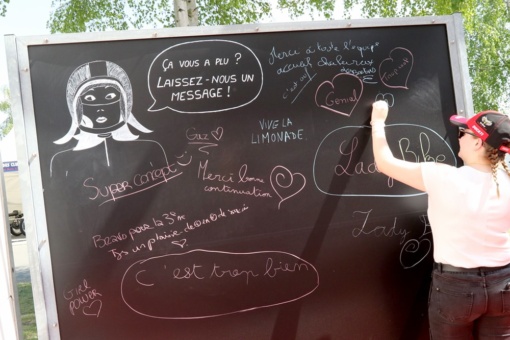 ÇA VOUS A PLU ?
LAISSEZ-NOUS UN
MESSAGE !
Merci à toute l'équipe
accueil chaleureux
c'est
Génial
Gaz
VIVE LA
LIMONADE.
Super concept
Merci bonne
continuation
Lady Bike
Bravo pour la 3e
un plaisir de
Lady B
C'est trop bien
GIRL
POWER